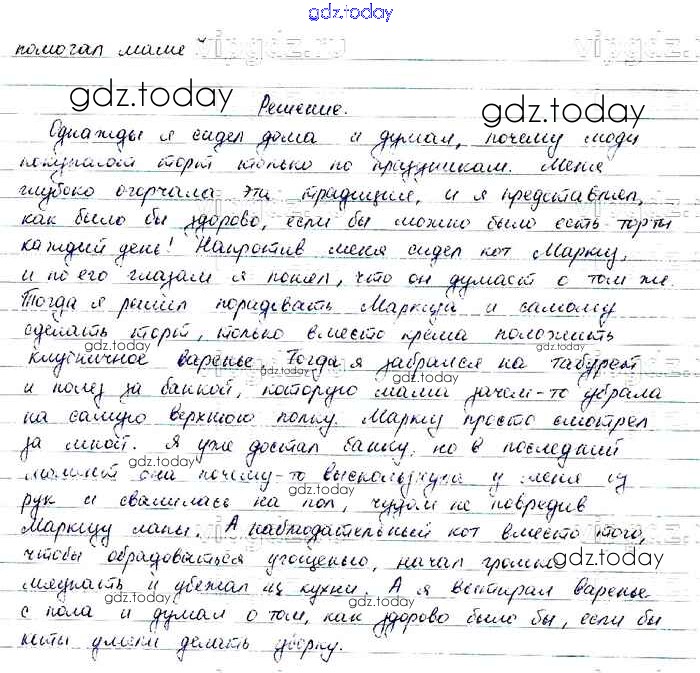 gdz.today
помогал маме
vipgdz.ru
vipgdz.ru
gdz.today
gdz.today
Решение.
Однажды я сидел дома и думал, почему люди
покупают торт только по праздникам. Меня
глубоко огорчала эта традиция, и я представлял,
как было бы здорово, если бы можно было есть торты
каждый день! Напротив меня сидел кот Маркиз,
и по его глазам я понял, что он думает о том же.
Тогда я решил порадовать Маркиза и самому
сделать торт, только вместо крема положить
gdz.today
gdz.today
клубничное варенье. Тогда я забрался на табурет
gdz.today
и полез за банкой, которую мама зачем-то убрала
на самую верхнюю полку. Маркиз просто смотрел
за мной. Я уже достал банку, но в последний
момент она почему-то выскользнула у меня из
gdz.today
gdz.today
рук и свалилась на пол, чудом не повредив
Маркизу лапы. А наблюдательный кот вместо того,
чтобы обрадоваться угощенью, начал громко
gdz.today
мяукать и убежал из кухни. А я вытирал варенье
gdz.today
gdz.today
с пола и думал о том, как здорово было бы, если бы
коты умели делать уборку.